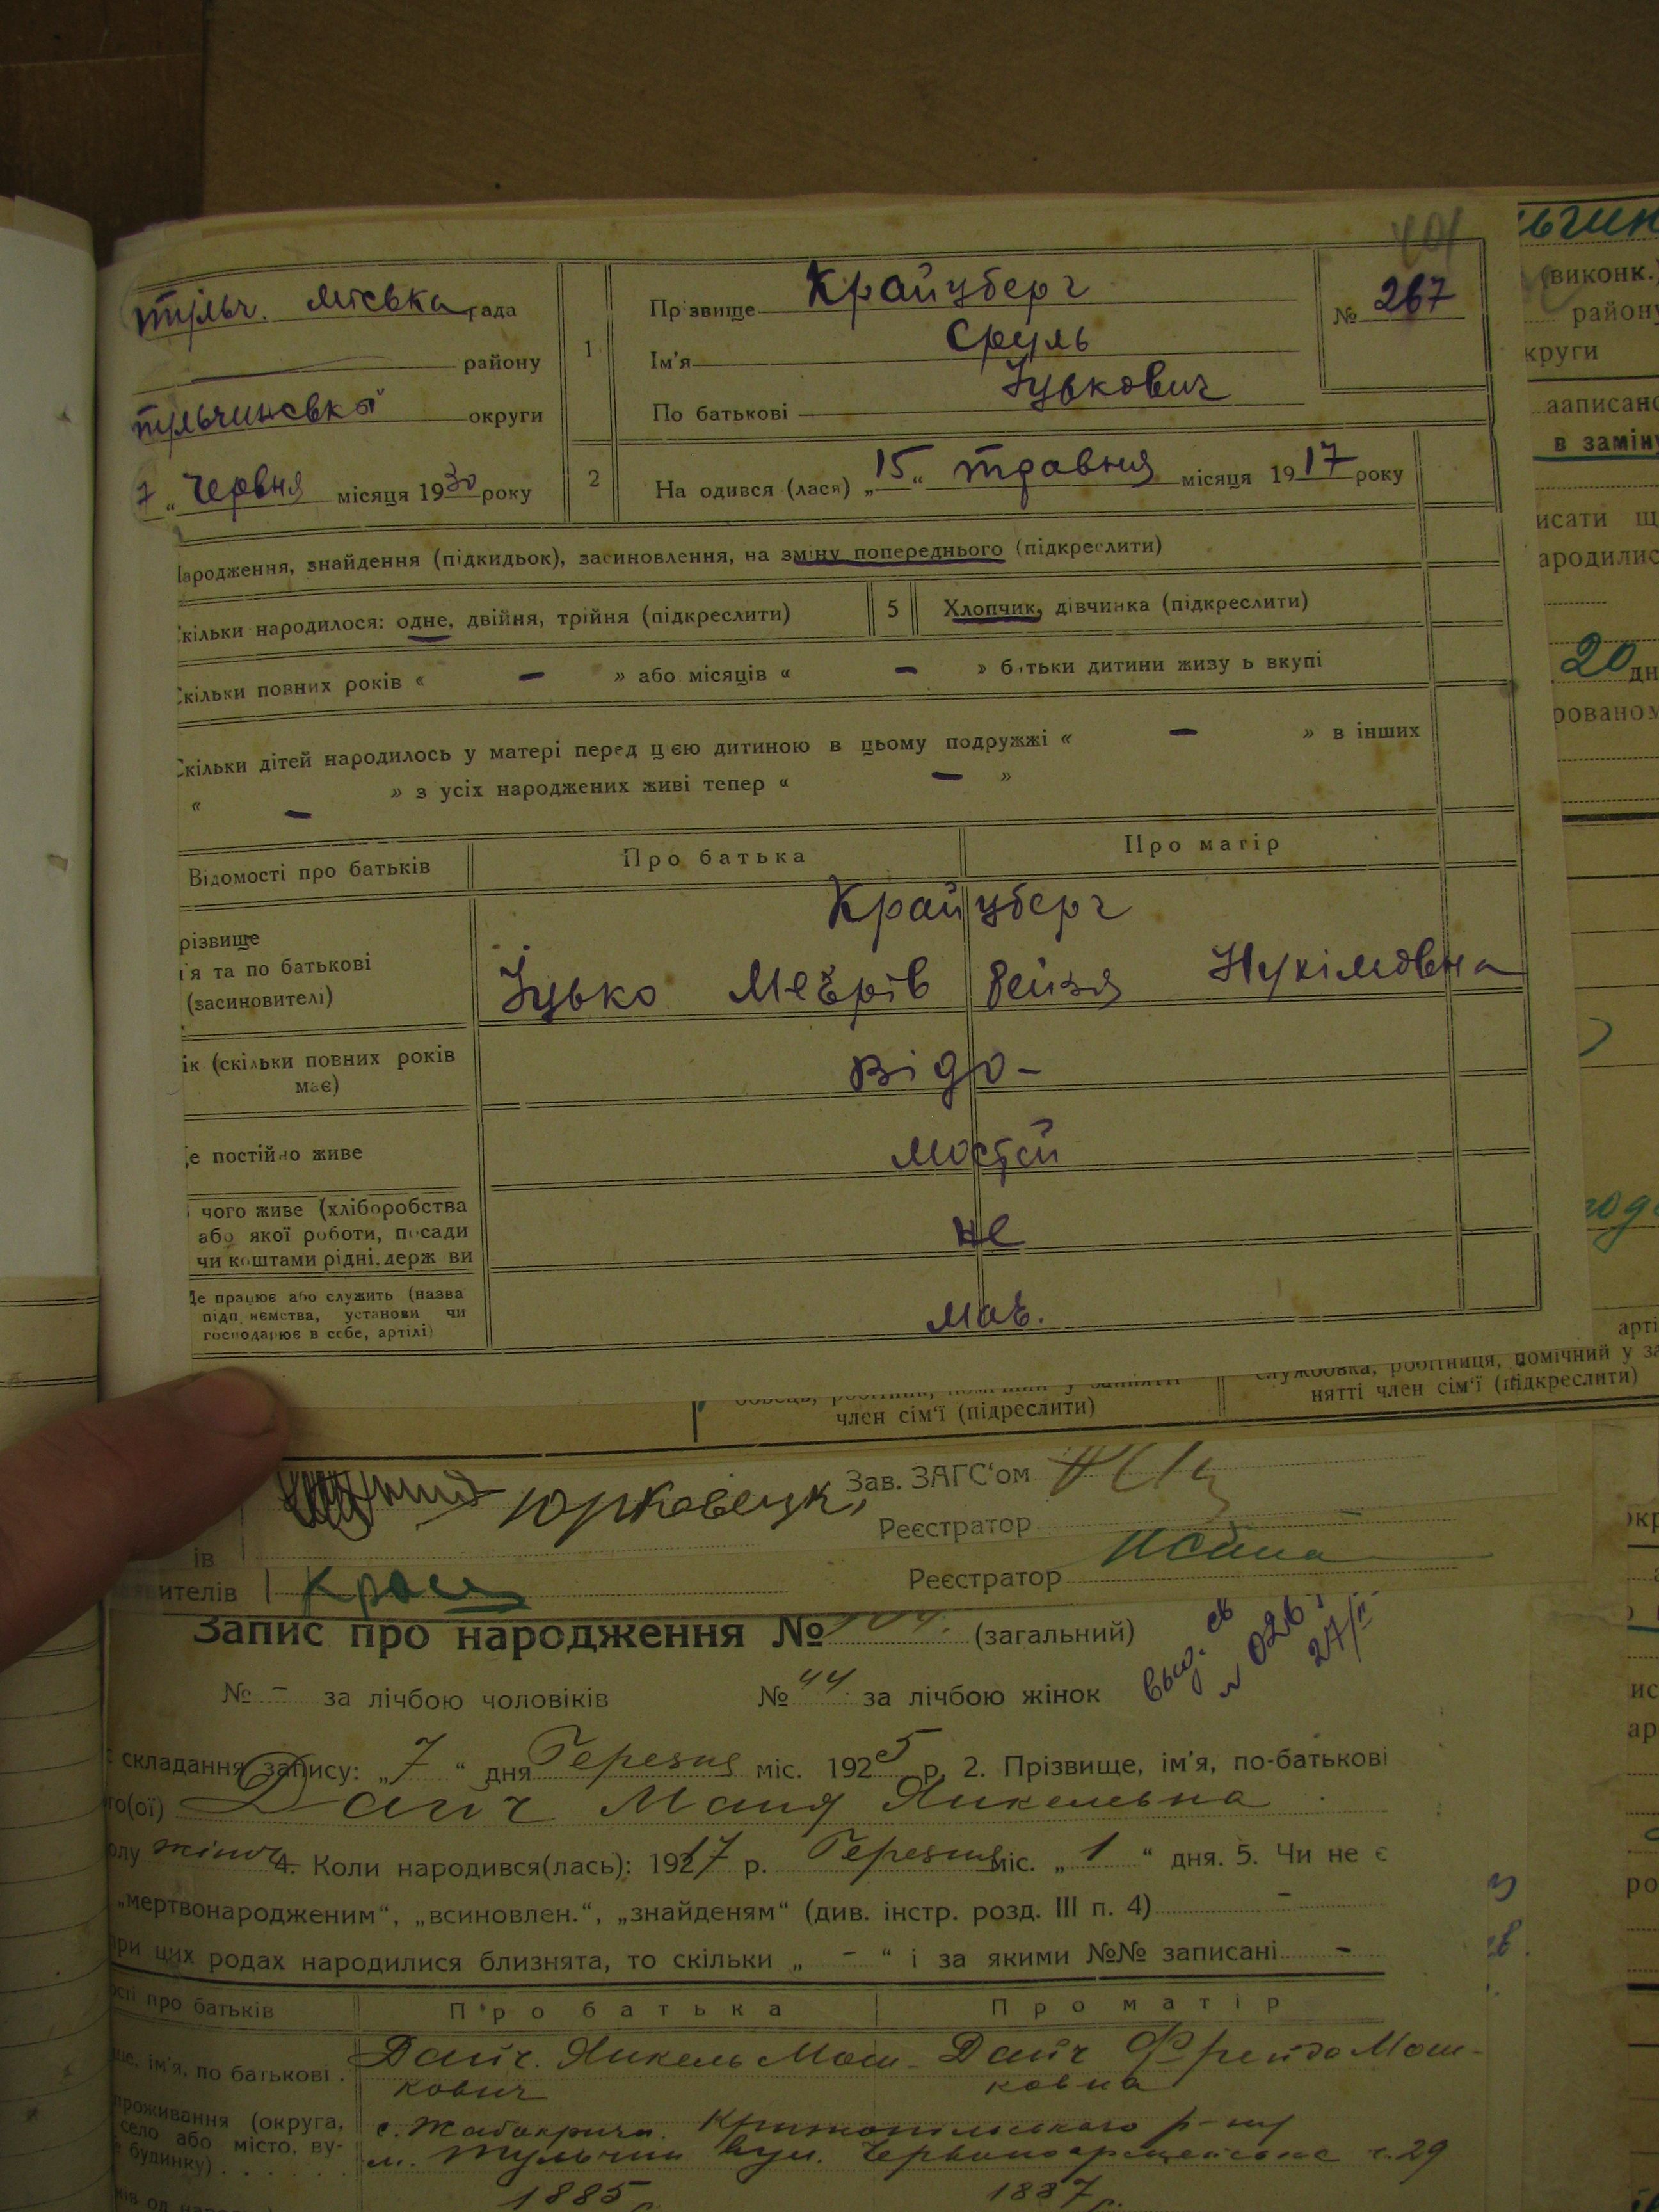 401
Тульч. міська рада
району
Тульчинської округи
7 „ Червня місяця 1930 року
1
Прізвище Крайцберг
Ім'я Сруль
По батькові Іцькович
№ 267
2
На одився (лася) „15“ травня місяця 1917 року
ародження, знайдення (підкидьок), засиновлення, на зміну попереднього (підкреслити)
кільки народилося: одне, двійня, трійня (підкреслити)
5
Хлопчик, дівчинка (підкреслити)
кільки повних років « — » або місяців « — » б тьки дитини живу ь вкупі
кільки дітей народилось у матері перед цією дитиною в цьому подружжі « — » в інших
« — » з усіх народжених живі тепер « — »
Відомості про батьків
Про батька
Про матір
Крайцберг
різвище
я та по батькові
(засиновителі)
Іцько Меєрів Рейзя Нухімовна
ік (скільки повних років
має)
Відо-
е постійно живе
мостей
чого живе (хліборобства
або якої роботи, посади
чи коштами рідні, держ ви
не
Де працює або служить (назва
підп иємства, установи чи
господарює в себе, артілі)
має.
член сім'ї (підреслити)
службовка, робітниця, помічний у за
нятті член сім'ї (підкреслити)
Юрковецк
Зав. ЗАГС'ом
Реєстратор
ів
ителів
Реєстратор
Запис про народження № 104. (загальний)
№ - за лічбою чоловіків № 44 за лічбою жінок
складання запису: „7“ дня Березня міс. 1925 р. 2. Прізвище, ім'я, по-батькові
го(ої) Дайч Маня Янкелевна
олу жіноч 4. Коли народився(лась): 19217 р. Березня міс. „1“ дня. 5. Чи не є
„мертвонародженим“, „всиновлен.“, „знайденям“ (див. інстр. розд. III п. 4) -
при цих родах народилися близнята, то скільки „ - “ і за якими №№ записані -
ості про батьків
Про батька
Про матір
ще, ім'я, по батькові .
Дайч. Янкель Мош- Дайч Фрейда Мош-
кович ковна
проживання (округа,
село або місто, ву-
будинку)
с. Жабокрича. Крижопільского р-ну
м. Тульчин вул. Червоноармейська ч. 29
1885 1887
ьгин
(виконк.)
району
круги
записано
в заміну
исати щ
ародилис
20 дн
рованом
арті